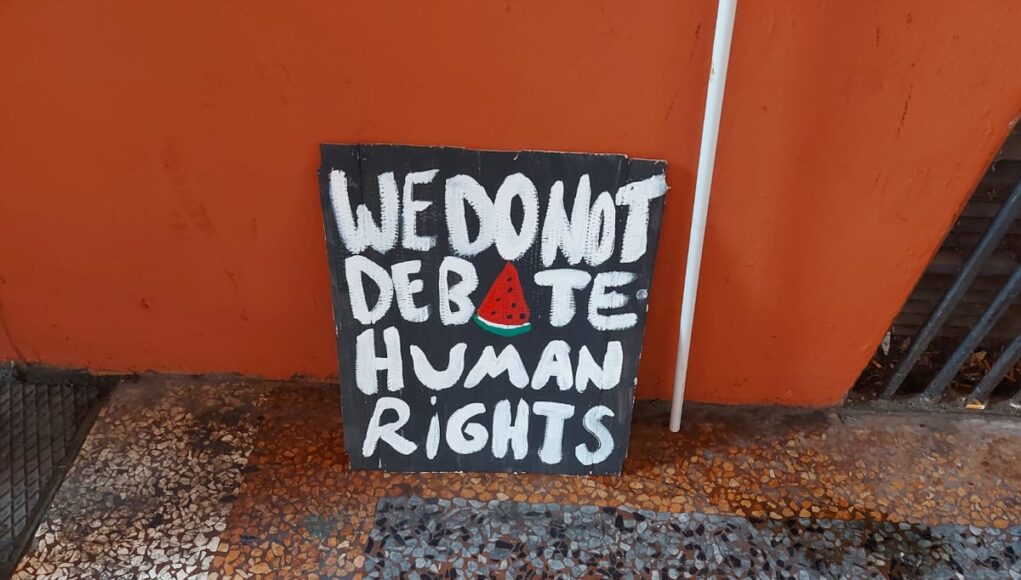 WE DO NOT
DEBATE
HUMAN
RiGHTS